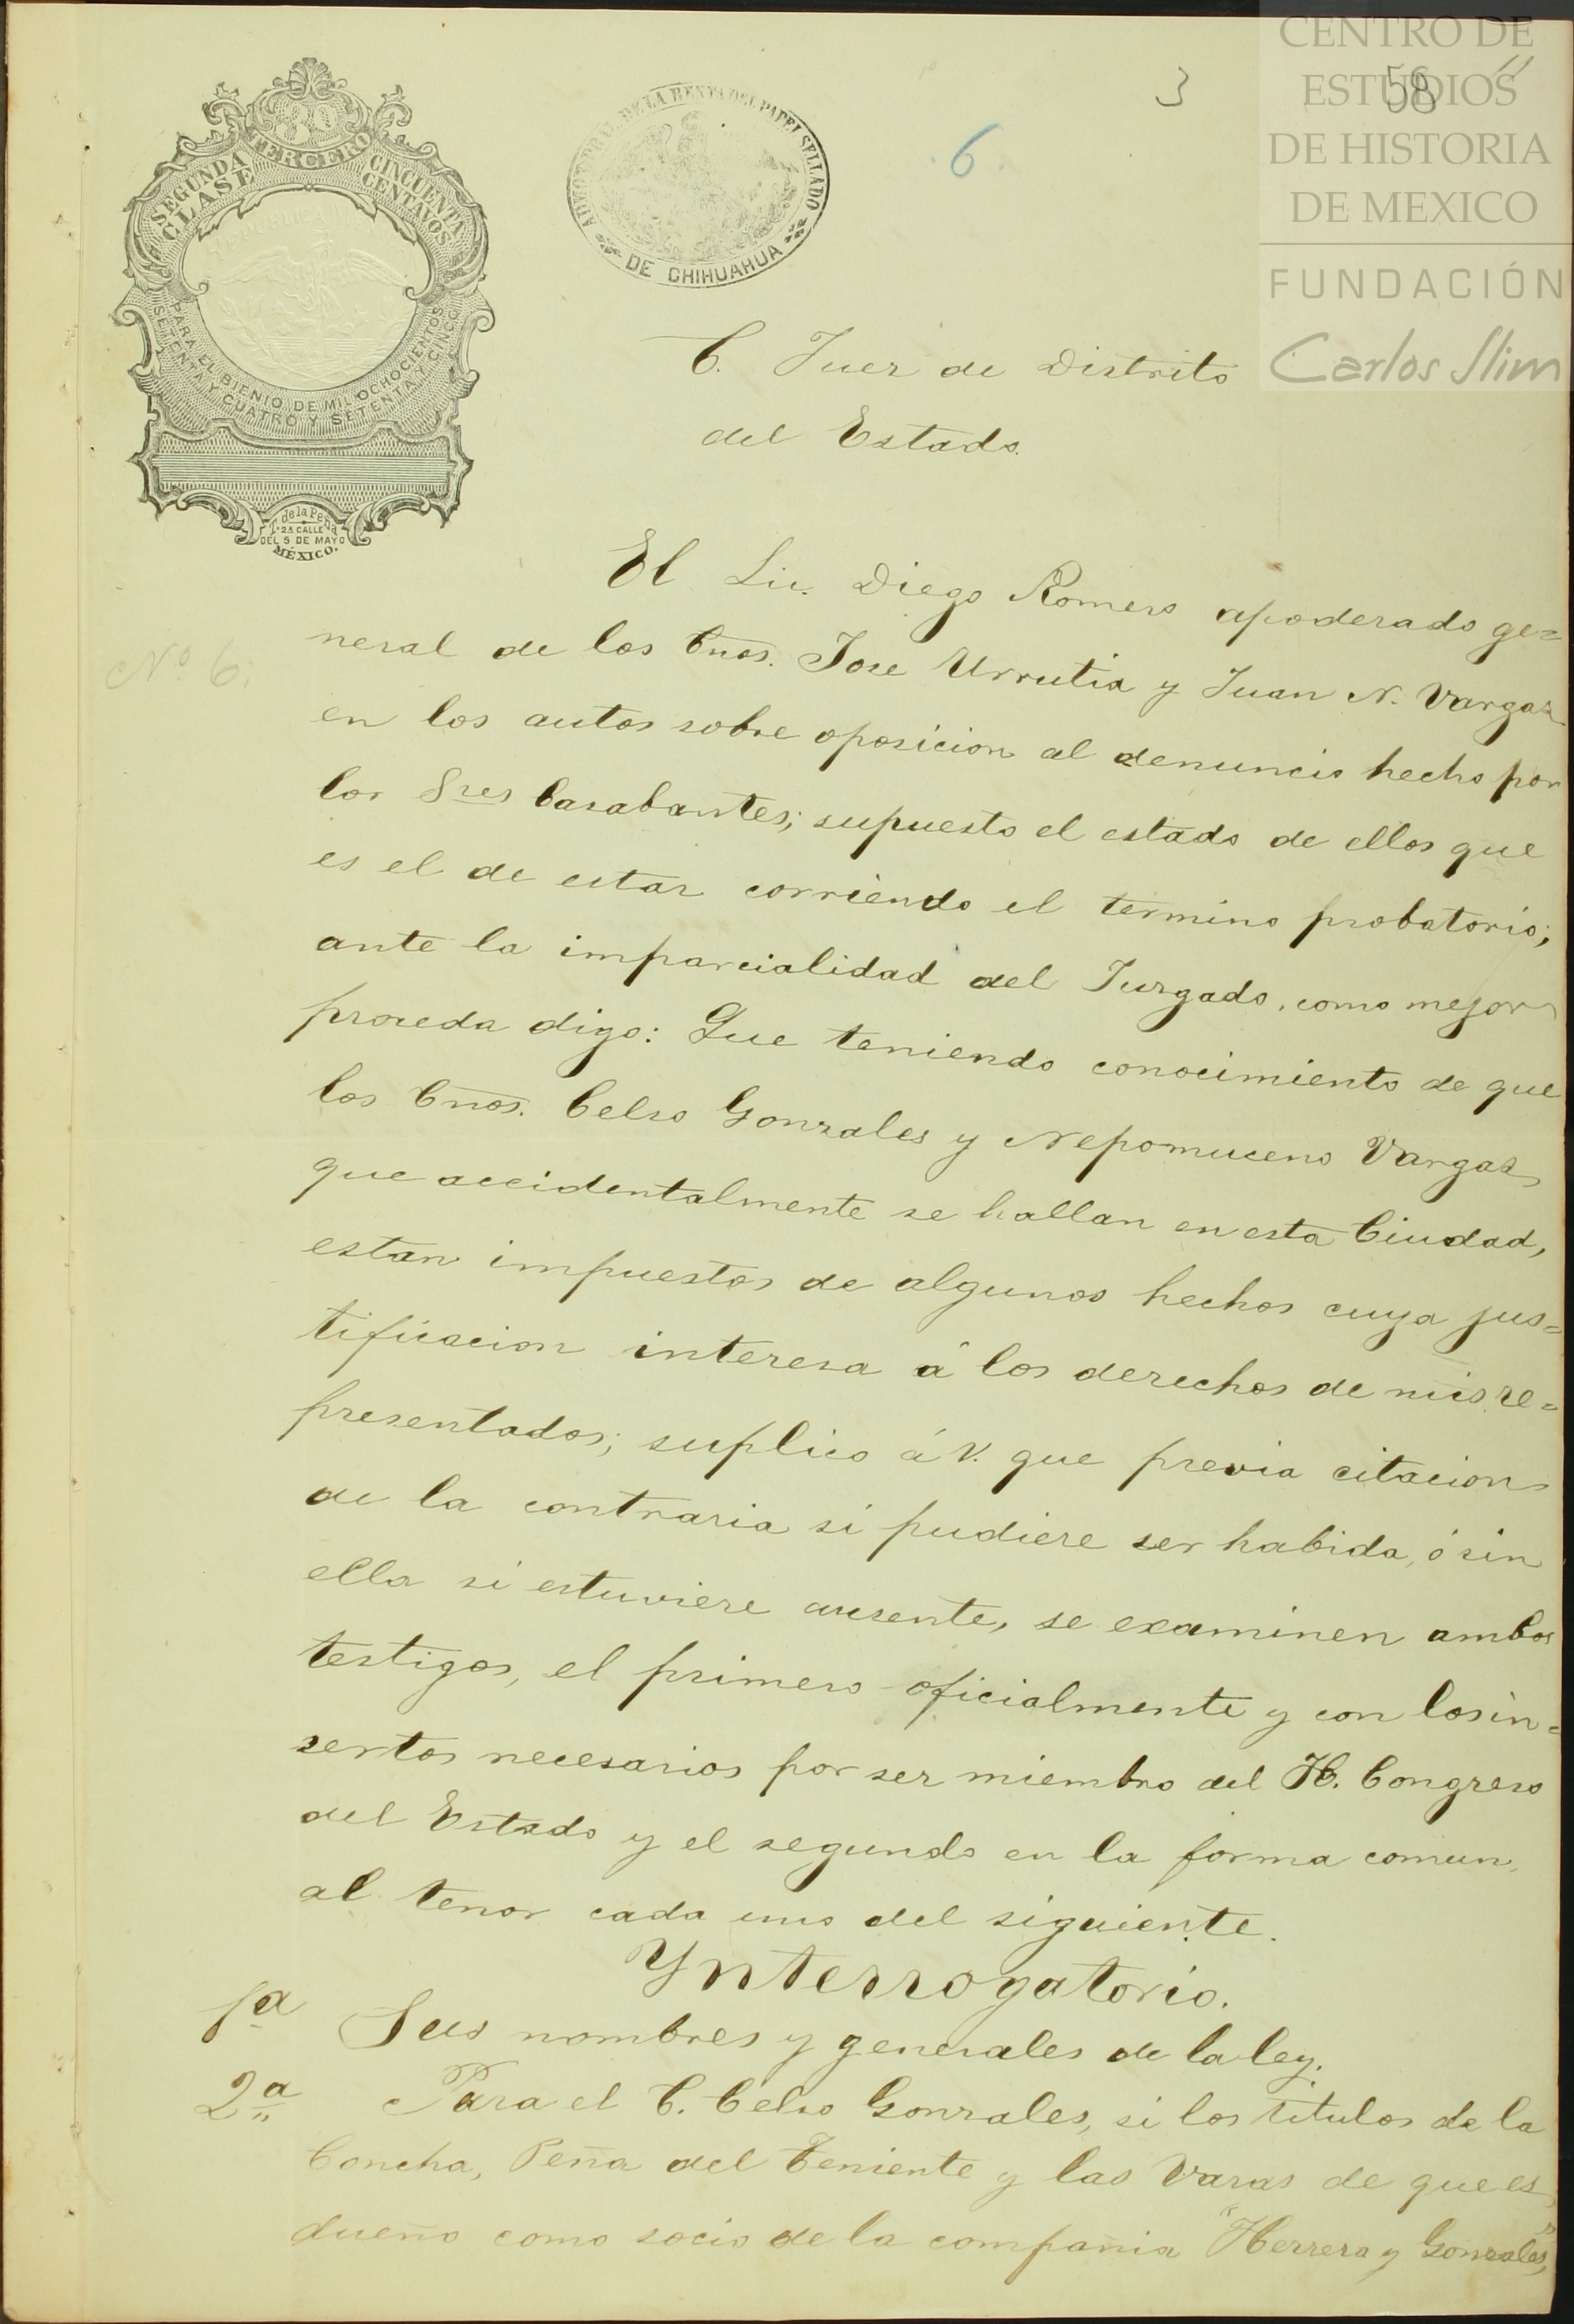 CENTRO DE
ESTUDIOS
DE HISTORIA
DE MEXICO
FUNDACIÓN
Carlos Slim
3
58
6
SEGUNDA CLASE
TERCERO
CINCUENTA CENTAVOS
PARA EL BIENIO DE MIL OCHOCIENTOS
SETENTA Y CUATRO Y SETENTA Y CINCO
T. de la Peña
2A CALLE
DEL 5 DE MAYO
MÉXICO.
DE LA RENTA DEL PAPEL SELLADO
DE CHIHUAHUA
C. Juez de Distrito
del Estado.
Nº 6.
El Lic. Diego Romero apoderado ge=
neral de los Cnos. Jose Urrutia y Juan N. Vargas
en los autos sobre oposicion al denuncio hecho por
los Sres Casabantes; supuesto el estado de ellos que
es el de estar corriendo el termino probatorio;
ante la imparcialidad del Juzgado, como mejor
proceda digo: Que teniendo conocimiento de que
los Cnos. Celso Gonzales y Nepomuceno Vargas
que accidentalmente se hallan en esta Ciudad,
estan impuestos de algunos hechos cuya jus=
tificacion interesa á los derechos de mis re=
presentados; suplico á V. que previa citacion
de la contraria si pudiere ser habida, ó sin
ella si estuviere ausente, se examinen ambos
testigos, el primero oficialmente y con los in=
sertos necesarios por ser miembro del H. Congreso
del Estado y el segundo en la forma comun,
al tenor cada uno del siguiente.
Ynterrogatorio.
1ª Sus nombres y generales de la ley.
2ª Para el C. Celso Gonzales, si los titulos de la
Concha, Peña del Teniente y las Varas de que es
dueño como socio de la compañia "Herrera y Gonzales,"